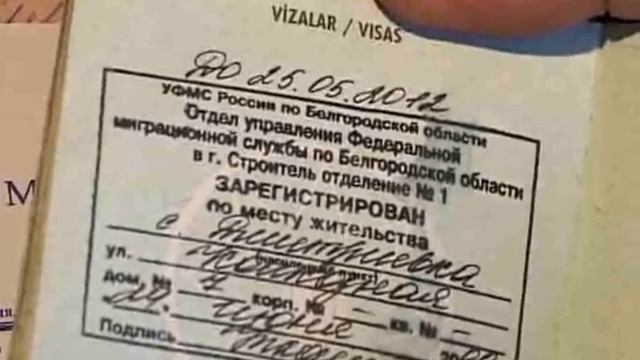 VİZALAR / VISAS
До 25.05.2012
УФМС России по Белгородской области
Отдел управления Федеральной
миграционной службы по Белгородской области
в г. Строитель отделение № 1
ЗАРЕГИСТРИРОВАН
по месту жительства
с. Дмитриевка
(населенный пункт)
ул.
дом. № 7 корп. № – кв. № –
"24" июня
Подпись
М